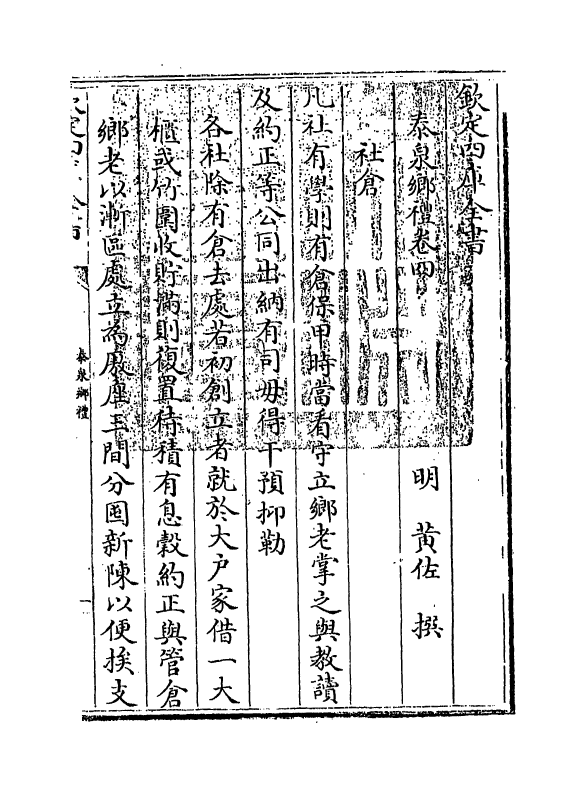 欽定四庫全書
泰泉鄉禮卷四
明 黃佐 撰
社倉
凡社有學則有倉保甲時當看守立鄉老掌之與教讀
及約正等公同出納有司毋得干預抑勒
各社除有倉去處若初創立者就於大户家借一大
櫃或竹圍收貯滿則復置待積有息穀約正與管倉
鄉老以漸區處立為厫座三間分囷新陳以便挨支
欽定四庫全書
泰泉鄉禮
一